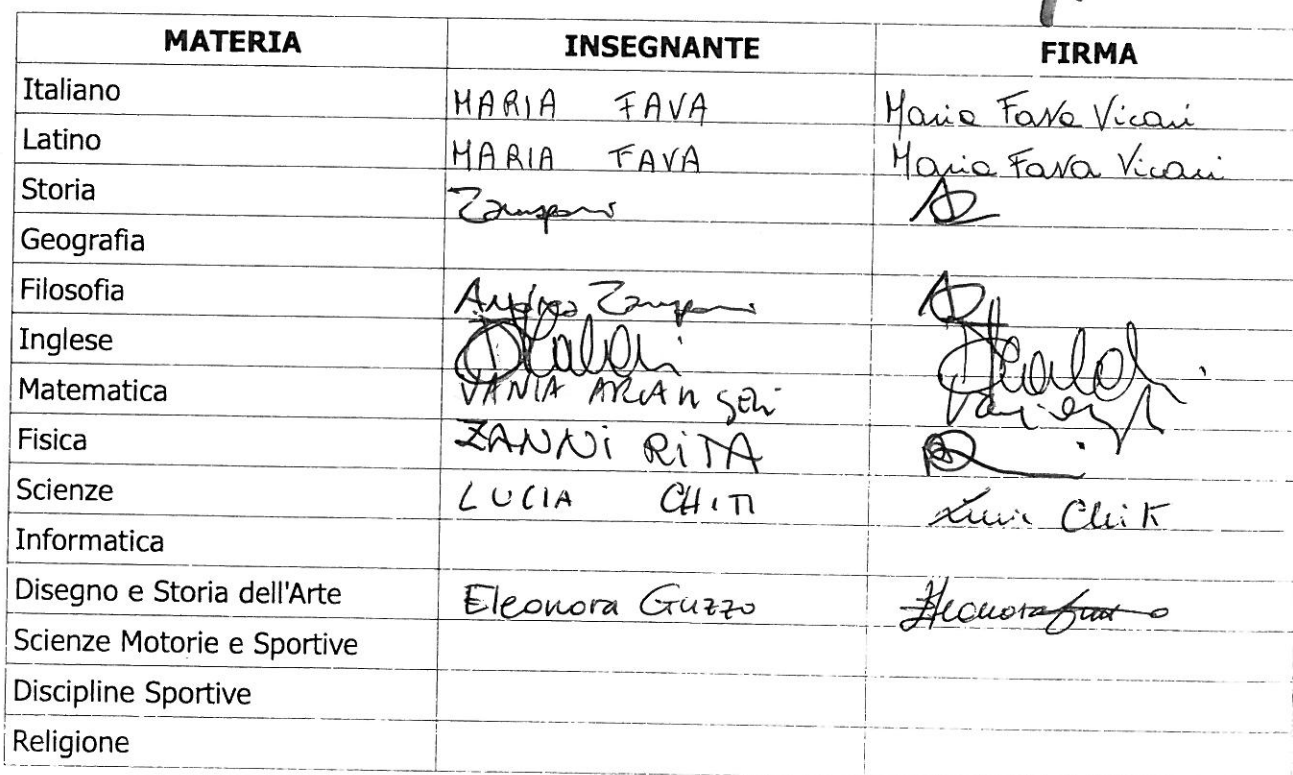 MATERIA INSEGNANTE FIRMA
Italiano MARIA FAVA Maria Fava Vicari
Latino MARIA FAVA Maria Fava Vicari
Storia Zamponi AZ
Geografia
Filosofia Andrea Zamponi AZ
Inglese
Matematica VANIA ARCANGELI
Fisica ZANNI RITA
Scienze LUCIA CHITI Lucia Chiti
Informatica
Disegno e Storia dell'Arte Eleonora Guzzo Eleonora Guzzo
Scienze Motorie e Sportive
Discipline Sportive
Religione